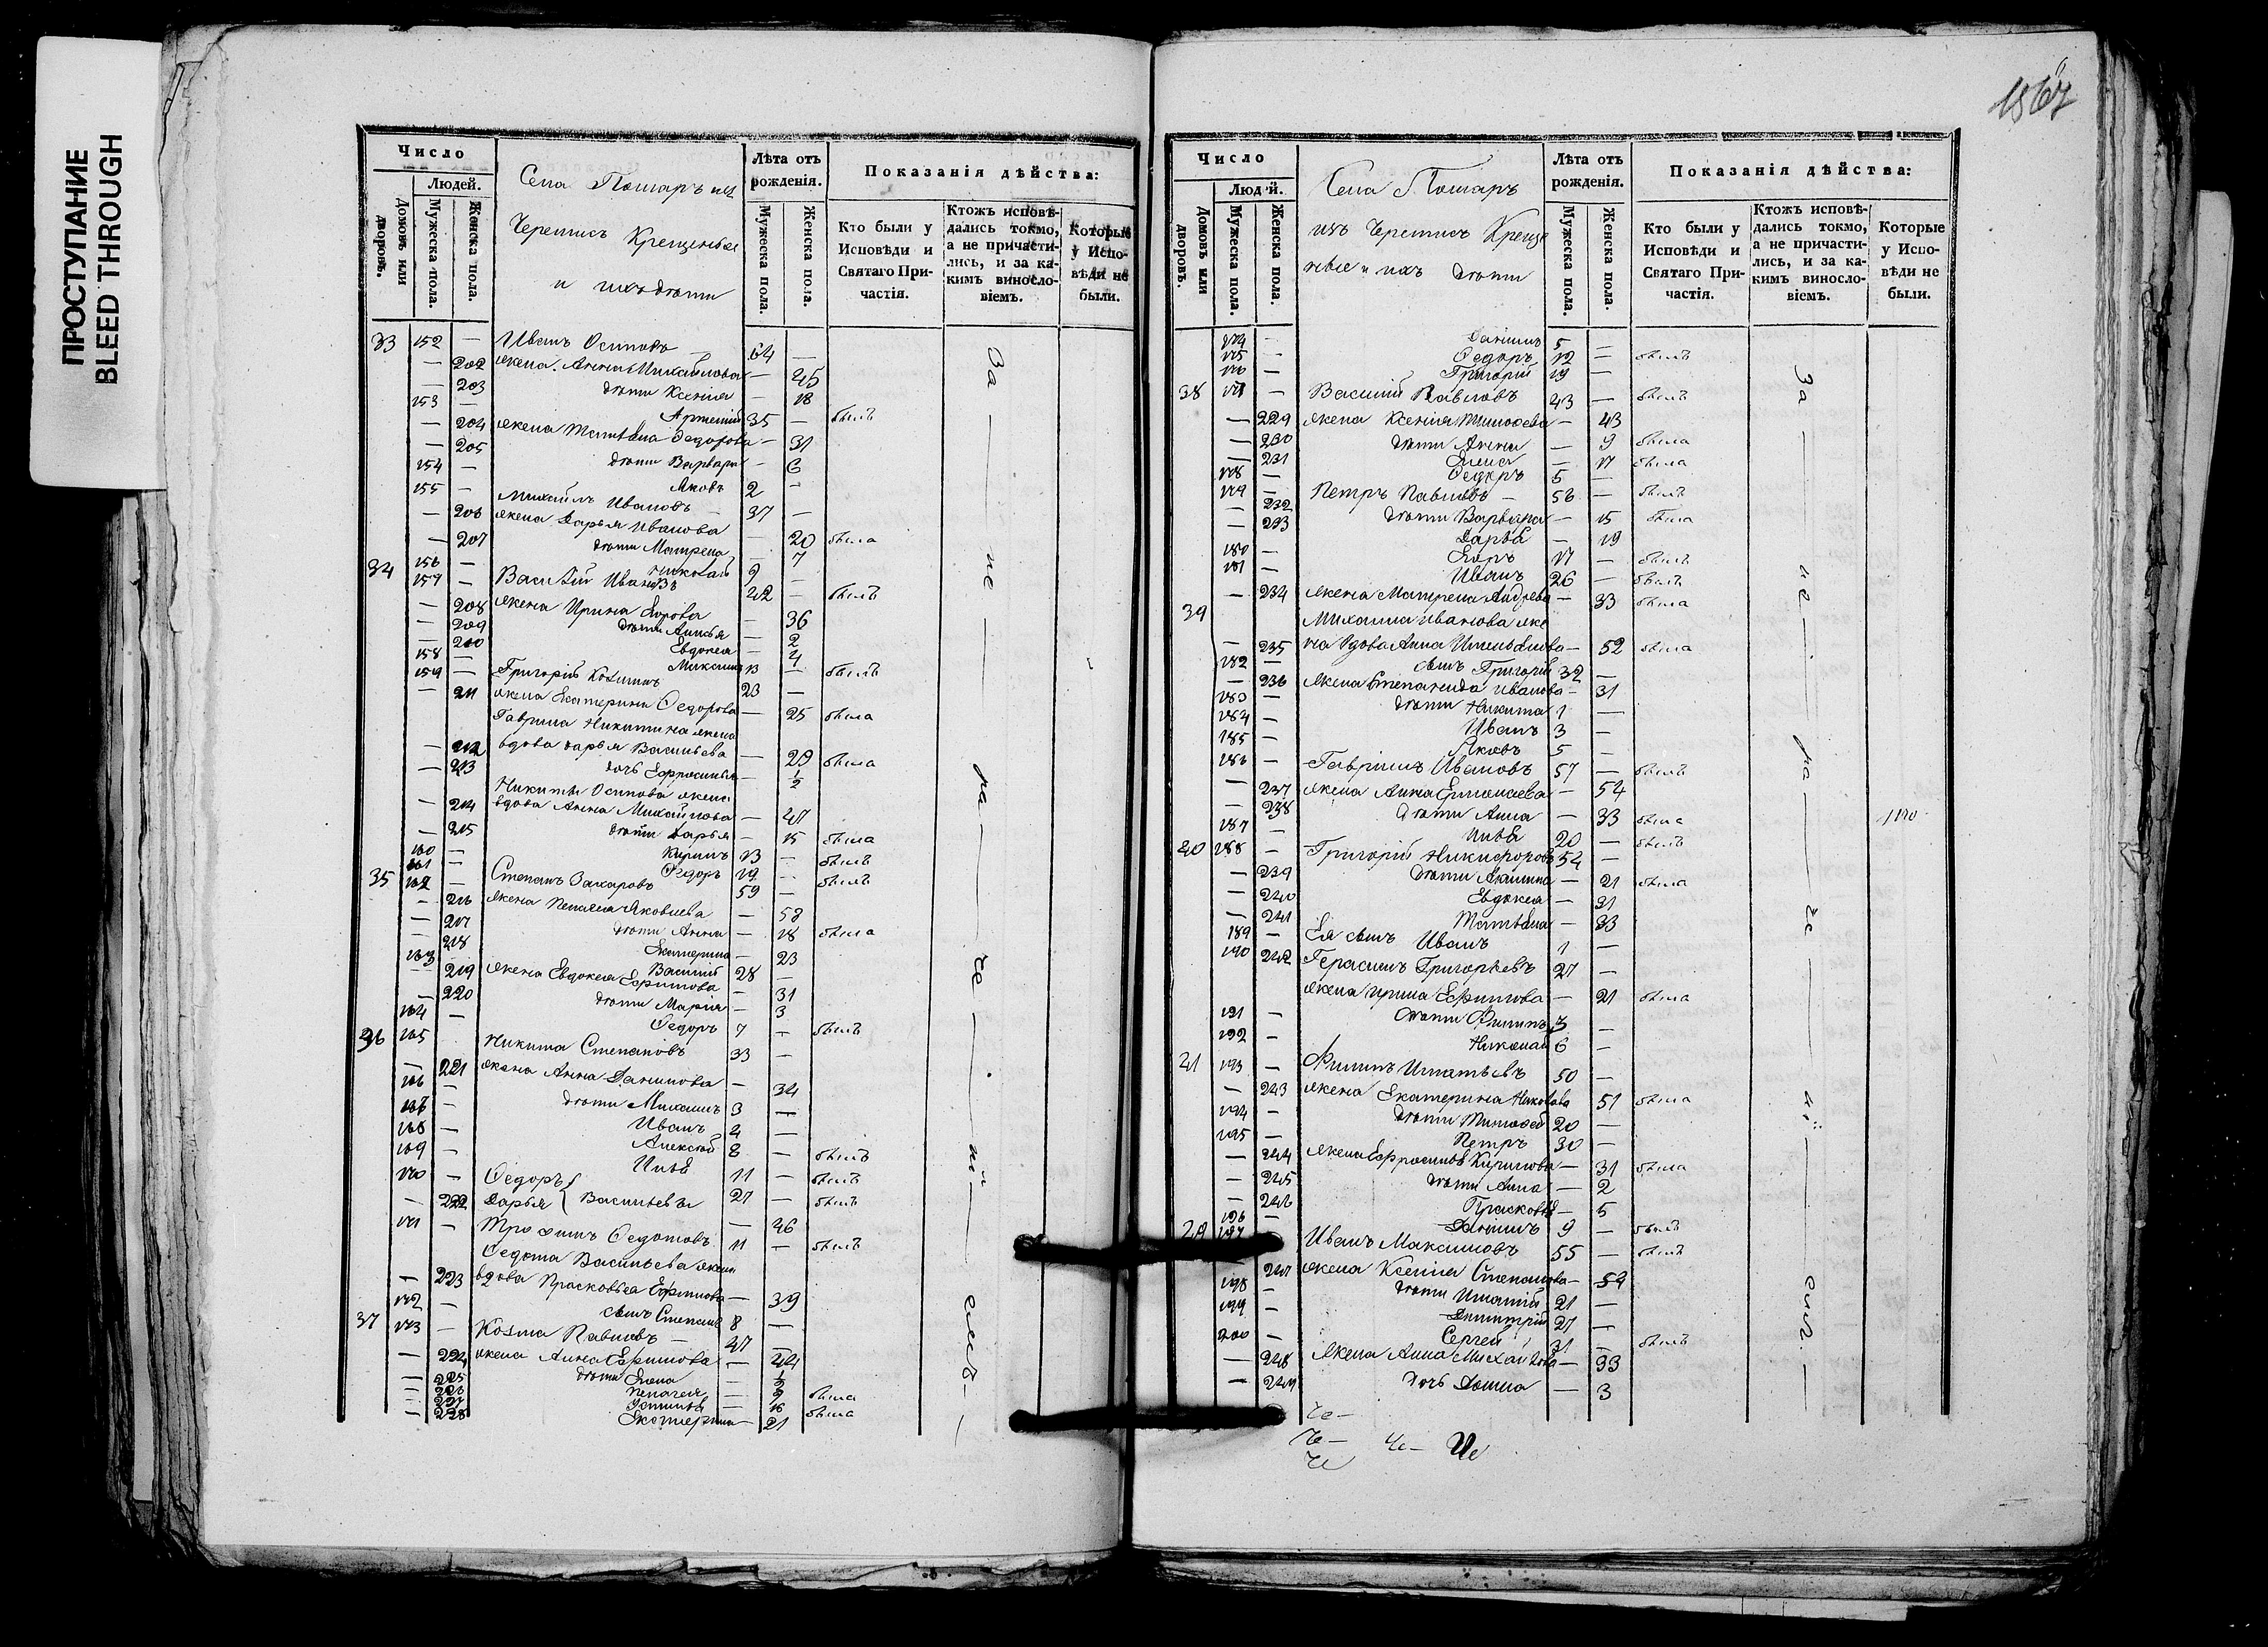 ПРОСТУПАНИЕ
BLEED THROUGH
Число
Людей.
Домовъ или дворовъ.
Мужеска пола.
Женска пола.
Села
и ихъ дѣти
Черемисъ Крещеные
Лѣта отъ рожденія.
Мужеска пола.
Женска пола.
Показанія дѣйства:
Кто были у Исповѣди и Святаго Причастія.
Ктожъ исповѣдались токмо, а не причастились, и за какимъ винословіемъ.
Которые у Исповѣди не были.
33 152 — Иванъ Осиповъ 64 —
— 202 жена Анна Михайлова — 45
— 203 дѣти Ксенія — 18
153 — Артемій 35 — былъ
— 204 жена Татьяна Федорова — 31
— 205 дѣти Варвара — 6
154 — Яковъ 2 —
155 — Михаилъ Ивановъ — 37 —
— 206 жена Дарья Иванова — 20 была
— 207 дѣти Матрена — 7
156 — Николай 9 —
34 157 — Василій Ивановъ 42 — былъ
— 208 жена Ирина Егорова — 36
— 209 дѣти Анисья — 2
— 210 Евдокея — 4
158 — Максимъ 13 — былъ
159 — Григорій Козминъ 23 —
— 211 жена Екатерина Федорова — 25 была
Гаврила Никитина жена
— 212 вдова Дарья Васильева — 29 была
— 213 дочь Ефросинья — 1/2
Никиты Осипова жена
— 214 вдова Анна Михайлова — 47
— 215 дѣти Дарья — 15 была
160 — Кирилъ 13 — былъ
161 — Федоръ 19 — былъ
35 162 — Степанъ Захаровъ 59 —
— 216 жена Пелагея Яковлева — 58
— 217 дѣти Анна — 18 была
— 218 Екатерина — 23
163 — Василій 28 —
— 219 жена Евдокея Ефимова — 31
— 220 дѣти Марія — 3
164 — Федоръ 7 — былъ
36 165 Никита Степановъ 33 —
— 221 жена Анна Данилова — 34
166 — дѣти Михаилъ 3 —
167 — Иванъ 4 —
168 — Алексѣй 8 — былъ
169 — Илья 11 — былъ
170 — Федоръ
— 222 Дарья } Васильевы 27 — былъ
— 46
171 — Трофимъ Федотовъ 11 — былъ
Федота Васильева жена
— 223 вдова Прасковья Ефимова — 39
172 — сынъ Степанъ 8 —
37 173 — Козма Павловъ — 47
— 224 жена Анна Ефимова — 44
— 225 дѣти Елена — 1/2
— 226 Пелагея — 9 была
— 227 — 16
— 228 Екатерина — 21 была
За — не — ра — че — ні — емъ —
1867
Число
Людей.
Домовъ или дворовъ.
Мужеска пола.
Женска пола.
Села
изъ Черемисъ Креще
ные и ихъ дѣти
Лѣта отъ рожденія.
Мужеска пола.
Женска пола.
Показанія дѣйства:
Кто были у Исповѣди и Святаго Причастія.
Ктожъ исповѣдались токмо, а не причастились, и за какимъ винословіемъ.
Которые у Исповѣди не были.
174 — Данилъ 5 —
175 — Федоръ 12 — былъ
176 — Григорій 19 —
38 177 — Василій Павловъ 43 — былъ
— 229 жена Ксенія Тимофеева — 43
— 230 дѣти Анна — 9 была
— 231 Елена — 17 была
178 — Федоръ 5 —
179 — Петръ Павловъ — 56 — былъ
— 232 дѣти Варвара — 15 была
— 233 Дарья — 19
180 — Егоръ 17 — былъ
181 — Иванъ 26 — былъ
— 234 жена Матрена Андреева — 33 была
39 Михаила Иванова же
— 235 на вдова Анна — 52 была
182 — сынъ Григорій 32 —
— 236 жена Степанида Иванова — 31
183 — дѣти Никита 1 —
184 — Иванъ 3 —
185 — Яковъ 5 —
186 — Гаврилъ Ивановъ 57 — былъ
— 237 жена Анна Ермолаева — 54
— 238 дѣти Анна — 33 была
187 — Илья 20 — былъ
40 188 — Григорій Никифоровъ 54 —
— 239 дѣти Акилина — 21 была
— 240 Евдокея — 31
— 241 Татьяна — 33
189 — Ея сынъ Иванъ 1 —
190 242 Герасимъ Григорьевъ 27 —
жена Ирина Ефимова — 21 была
191 — дѣти Филипъ 3 —
192 — Николай 6 —
41 193 — Филипъ Игнатьевъ 50 —
— 243 жена Екатерина — 51 была
194 — дѣти Тимофей 20 —
195 — Петръ 30 —
— 244 жена Ефросинья Кирилова — 31 была
— 245 дѣти Анна — 2
— 246 Прасковья — 5
196 — Данилъ 9 — былъ
197 Иванъ Максимовъ 55 — былъ
247 жена Ксенія Степанова — 59
198 — дѣти Игнатій 21 —
199 — Димитрій 27 —
200 — Сергей 31 — былъ
— 248 жена Анна Михайлова — 33
— 249 дочь Домна — 3
За — не — ра — че — ні — емъ —
Че —
Че — Че — Че
Че